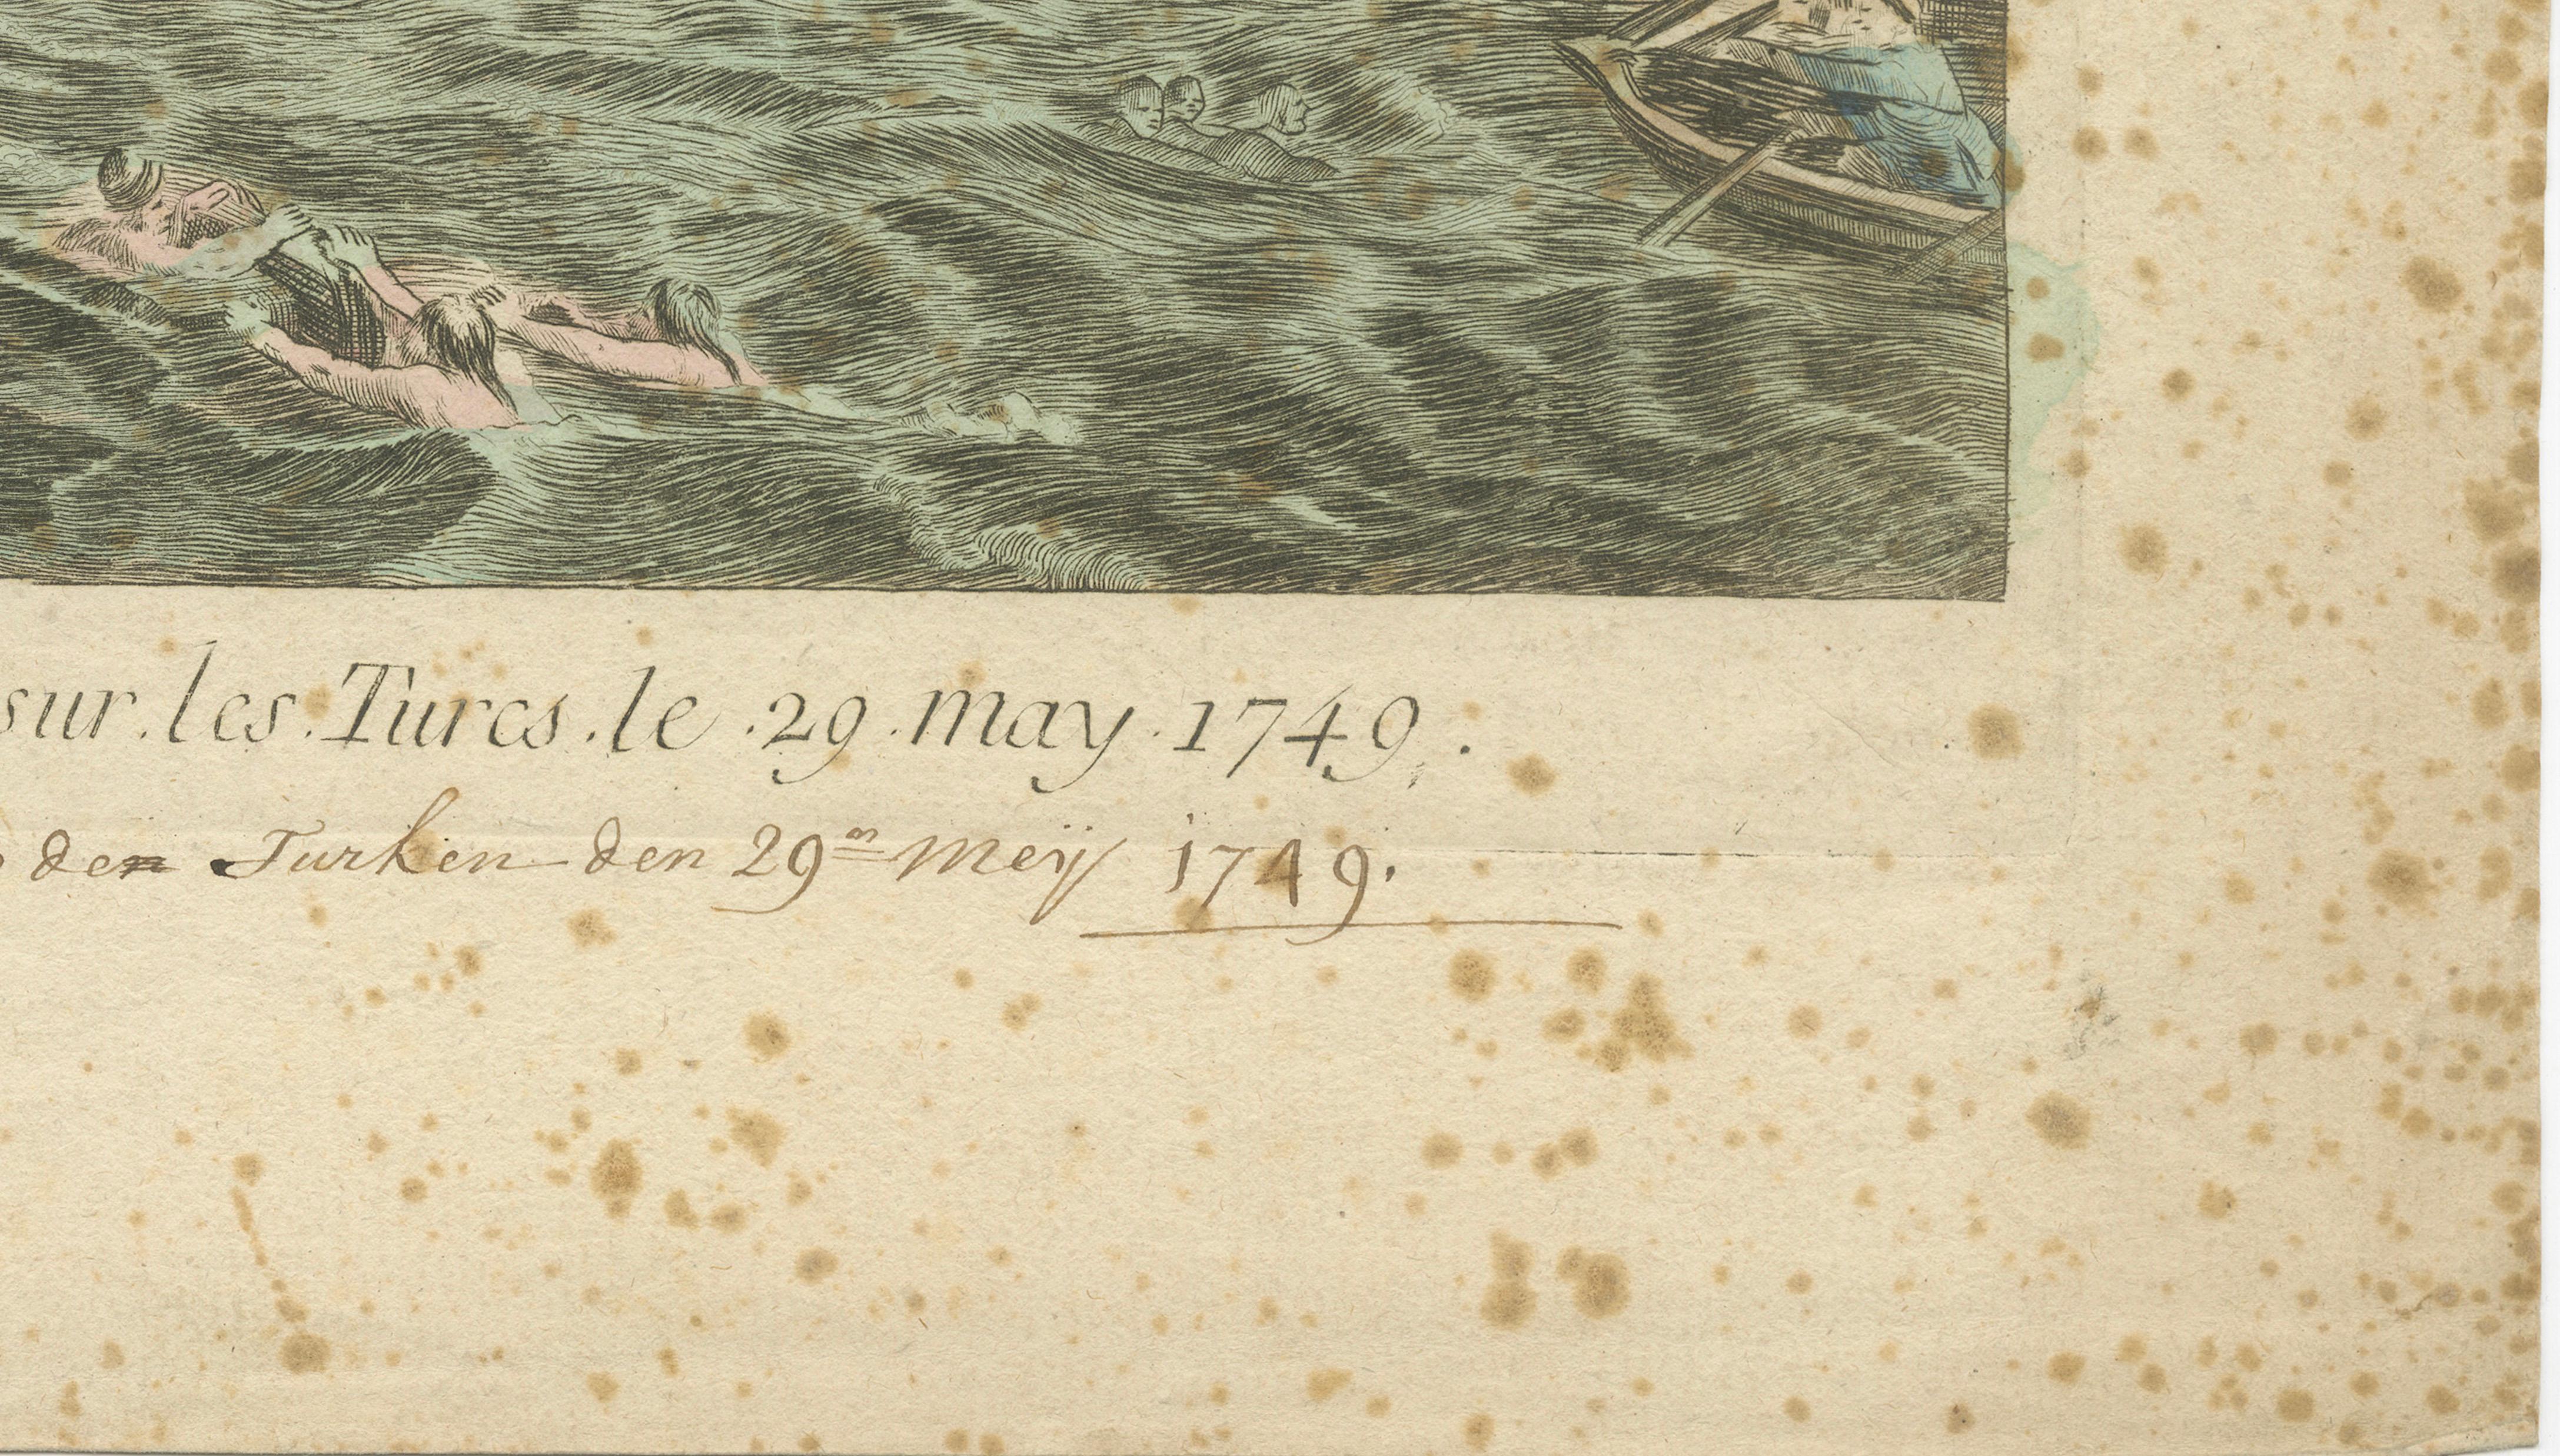 sur . les . Turcs . le . 29 . may . 1749 .
den Turken den 29en Meÿ 1749.